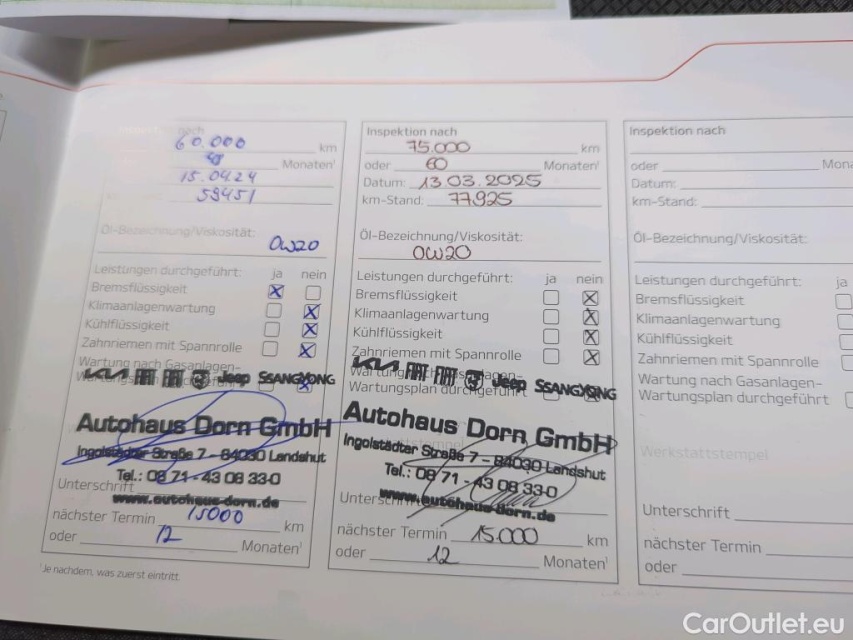 60.000 km
48 Monaten¹
15.04.24
59451
Öl-Bezeichnung/Viskosität:
0W20
Leistungen durchgeführt: ja nein
Bremsflüssigkeit
Klimaanlagenwartung
Kühlflüssigkeit
Zahnriemen mit Spannrolle
Wartung nach Gasanlagen-
Wartungsplan durchgeführt
KIA FIAT FIAT Jeep SSANGYONG
Autohaus Dorn GmbH
Ingolstädter Straße 7 - 84030 Landshut
Tel.: 08 71 - 43 08 33-0
Unterschrift
www.autohaus-dorn.de
nächster Termin 15000 km
oder 12 Monaten¹
¹Je nachdem, was zuerst eintritt.
Inspektion nach
75.000 km
oder 60 Monaten¹
Datum: 13.03.2025
km-Stand: 77.925
Öl-Bezeichnung/Viskosität:
0W20
Leistungen durchgeführt: ja nein
Bremsflüssigkeit
Klimaanlagenwartung
Kühlflüssigkeit
Zahnriemen mit Spannrolle
Wartung nach Gasanlagen-
Wartungsplan durchgeführt
KIA FIAT FIAT Jeep SSANGYONG
Autohaus Dorn GmbH
Ingolstädter Straße 7 - 84030 Landshut
Tel.: 08 71 - 43 08 33-0
Unterschrift
www.autohaus-dorn.de
nächster Termin 15.000 km
oder 12 Monaten¹
Inspektion nach
oder Mona
Datum:
km-Stand:
Öl-Bezeichnung/Viskosität:
Leistungen durchgeführt: ja
Bremsflüssigkeit
Klimaanlagenwartung
Kühlflüssigkeit
Zahnriemen mit Spannrolle
Wartung nach Gasanlagen-
Wartungsplan durchgeführt
Werkstattstempel
Unterschrift
nächster Termin
oder
CarOutlet.eu